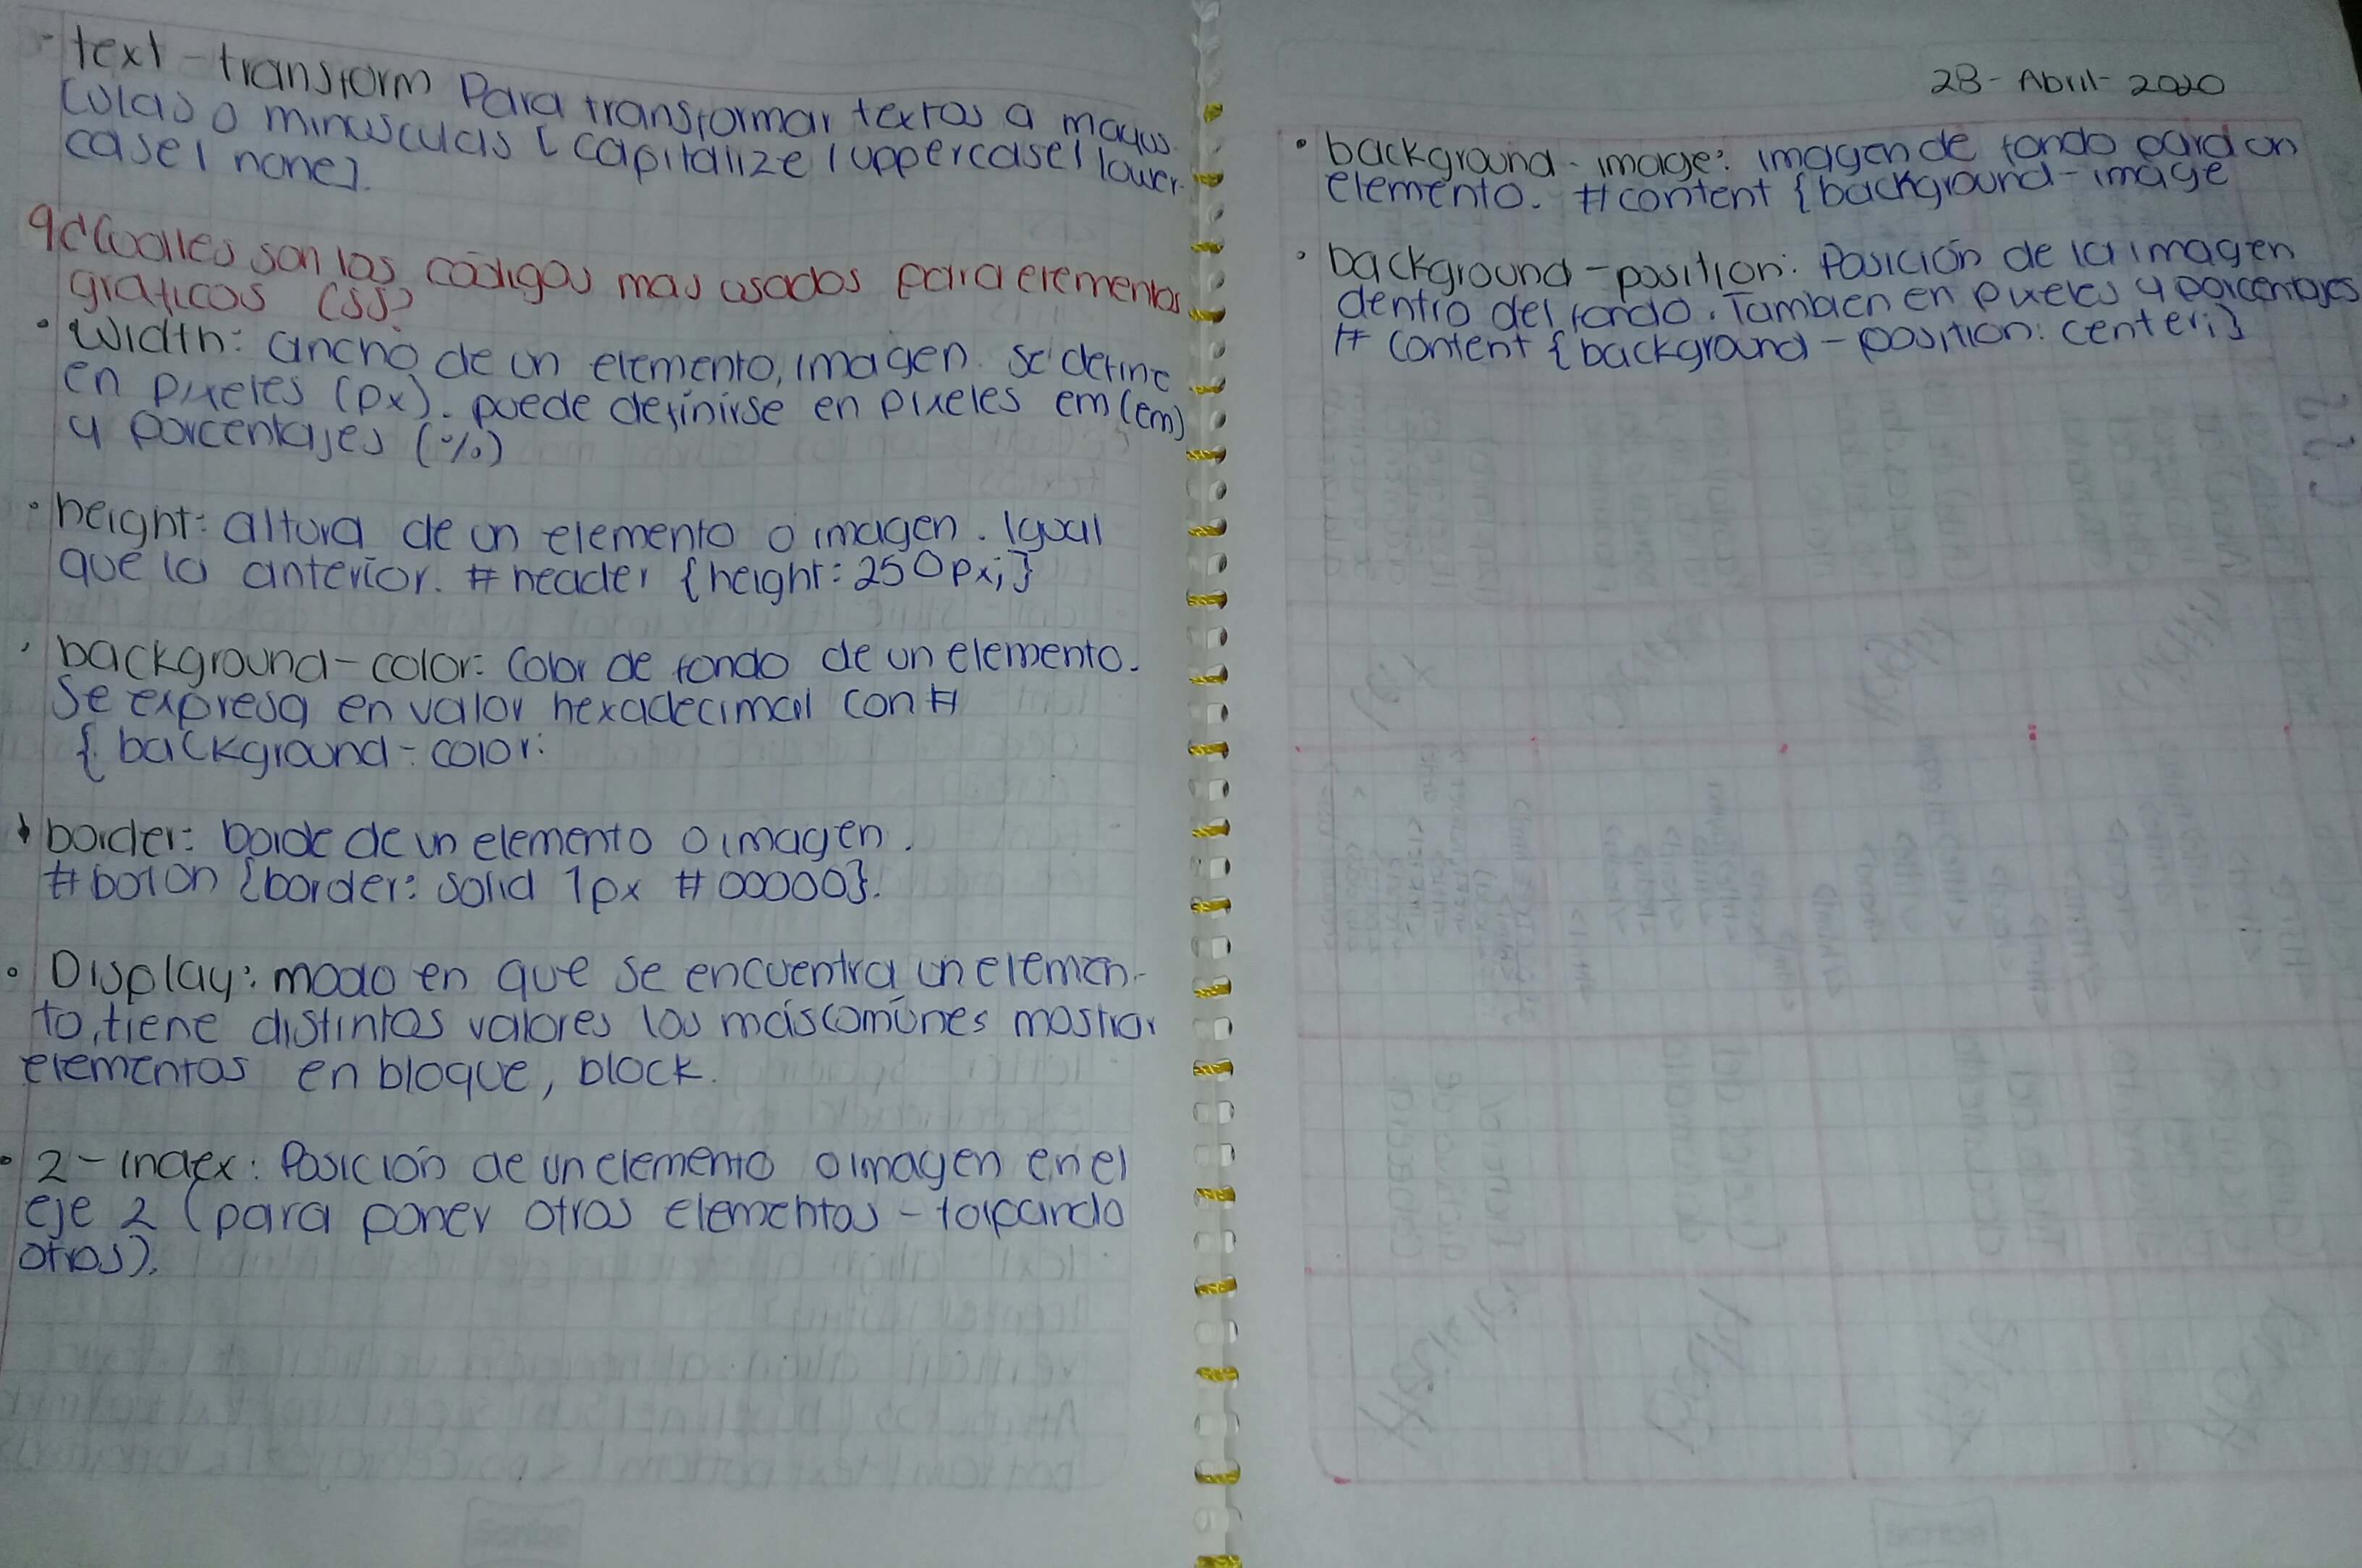 · text-transform Para transformar textos a mayus
culas o minusculas [capitalize | uppercase | lower-
case | none].
9¿Cuales son los códigos mas usados para elementos
graficos CSS?
· width: ancho de un elemento, imagen. Se define
en pixeles (px). puede definirse en pixeles em (em)
y porcentajes (%)
· height: altura de un elemento o imagen. Igual
que la anterior. #header {height: 250px;}
· background-color: Color de fondo de un elemento.
Se expresa en valor hexadecimal con #
{ background-color:
· border: borde de un elemento o imagen.
#boton {border: solid 1px #00000}.
· Display: modo en que se encuentra un elemen-
to, tiene distintos valores los más comúnes mostrar
elementos en bloque, block.
· z-index: Posición de un elemento o imagen en el
eje z (para poner otros elementos - tapando
otros).
28-Abril-2020
· background-image: imagen de fondo para un
elemento. #content {background-image
· background-position: Posición de la imagen
dentro del fondo. Tambien en pixeles y porcentajes
# content {background-position: center;}
Scribe
Scribe